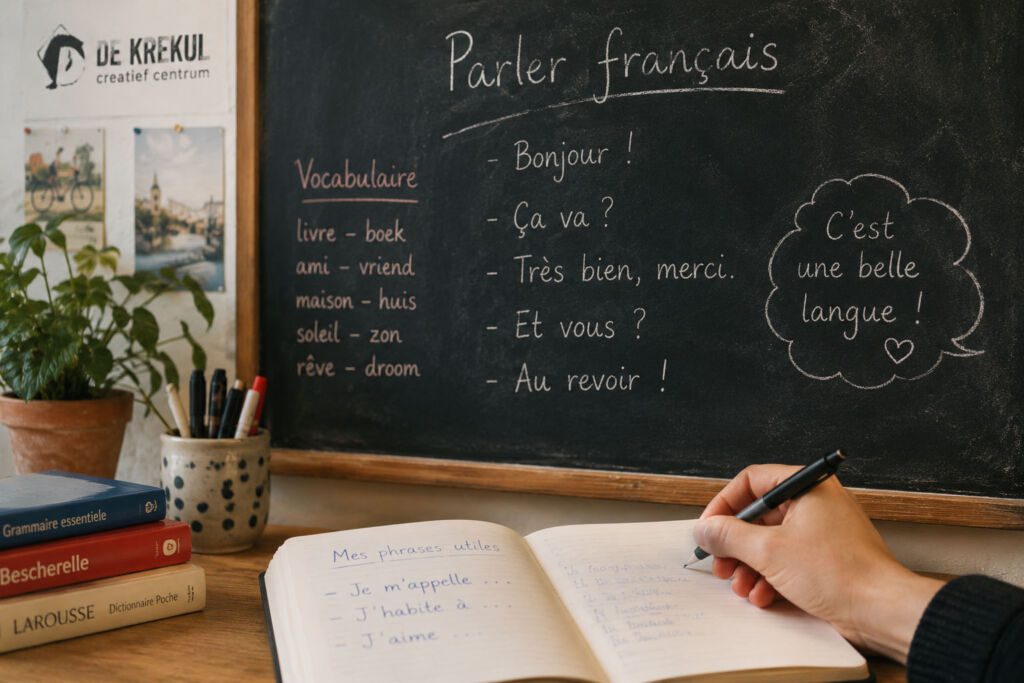 DE KREKUL
creatief centrum
Parler français
Vocabulaire
livre – boek
ami – vriend
maison – huis
soleil – zon
rêve – droom
- Bonjour !
- Ça va ?
- Très bien, merci.
- Et vous ?
- Au revoir !
C'est
une belle
langue !
Grammaire essentielle
Bescherelle
LAROUSSE Dictionnaire Poche
Mes phrases utiles
- Je m'appelle ...
- J'habite à ...
- J'aime ...